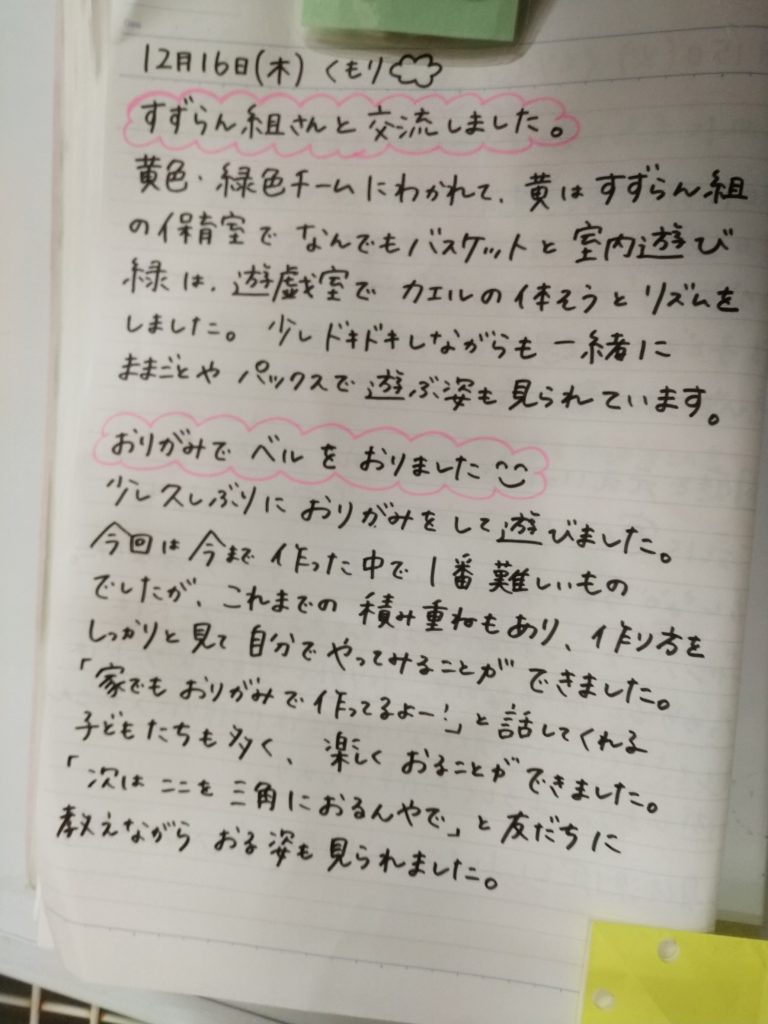 12月16日(木) くもり
すずらん組さんと交流しました。
黄色・緑色チームにわかれて、黄はすずらん組
の保育室で なんでもバスケットと室内遊び
緑は、遊戯室で カエルの体そうとリズムを
しました。少しドキドキしながらも一緒に
ままごとや パックスで遊ぶ姿も見られています。
おりがみで ベルを おりました
少し久しぶりに おりがみをして遊びました。
今回は今まで作った中で1番難しいもの
でしたが、これまでの積み重ねもあり、作り方を
しっかりと見て自分でやってみることができました。
「家でもおりがみで作ってるよー!」と話してくれる
子どもたちも多く、楽しくおることができました。
「次はここを三角におるんやで」と友だちに
教えながら おる姿も見られました。